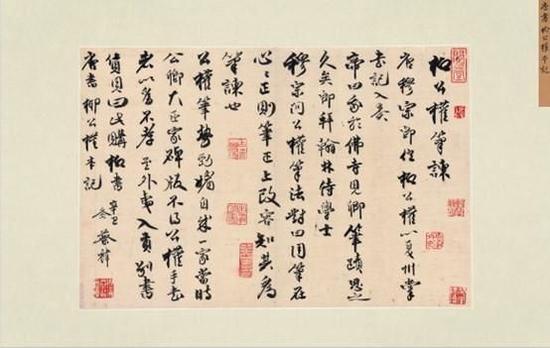 柳公權筆諫
唐穆宗即位柳公權以夏州掌
書記入奏
帝曰朕於佛寺見卿筆蹟思之
久矣即拜翰林侍學士
穆宗問公權筆法對曰用筆在
心心正則筆正上改容知其為
筆諫也
公權筆勢勁媚自成一家當時
公卿大臣家碑版不得公權手書
者以為不孝至外夷入貢別書
貨貝曰此購柳書
唐書柳公權本記
辛巳
蔡祥